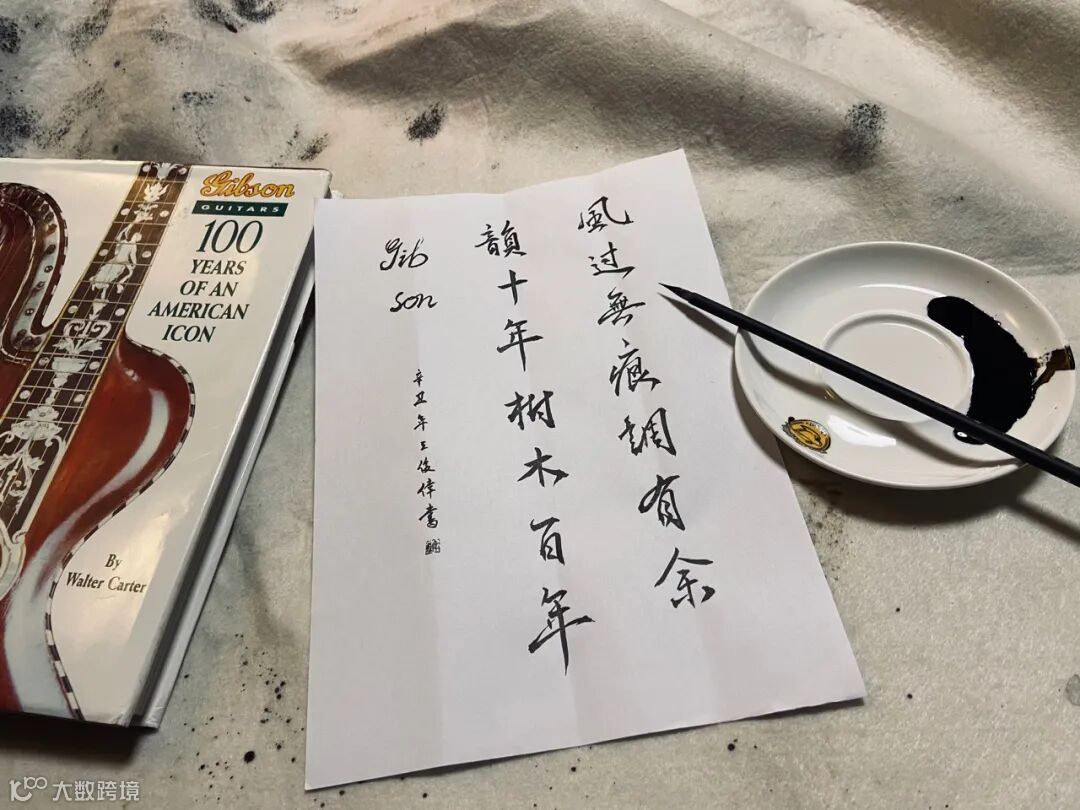 Gibson
GUITARS
100
YEARS
OF AN
AMERICAN
ICON
By
Walter Carter
風过無痕調有余
韻十年樹木百年
gib
son
辛丑年王俊偉書
大数跨境